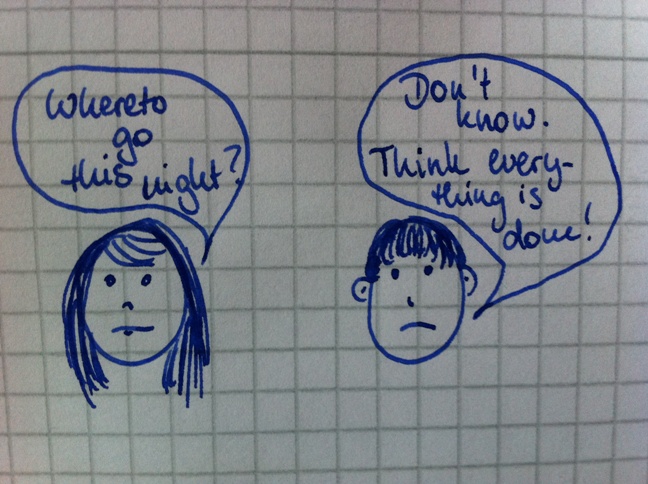 Whereto
go
this night?
Don't
know.
Think every-
thing is
done!